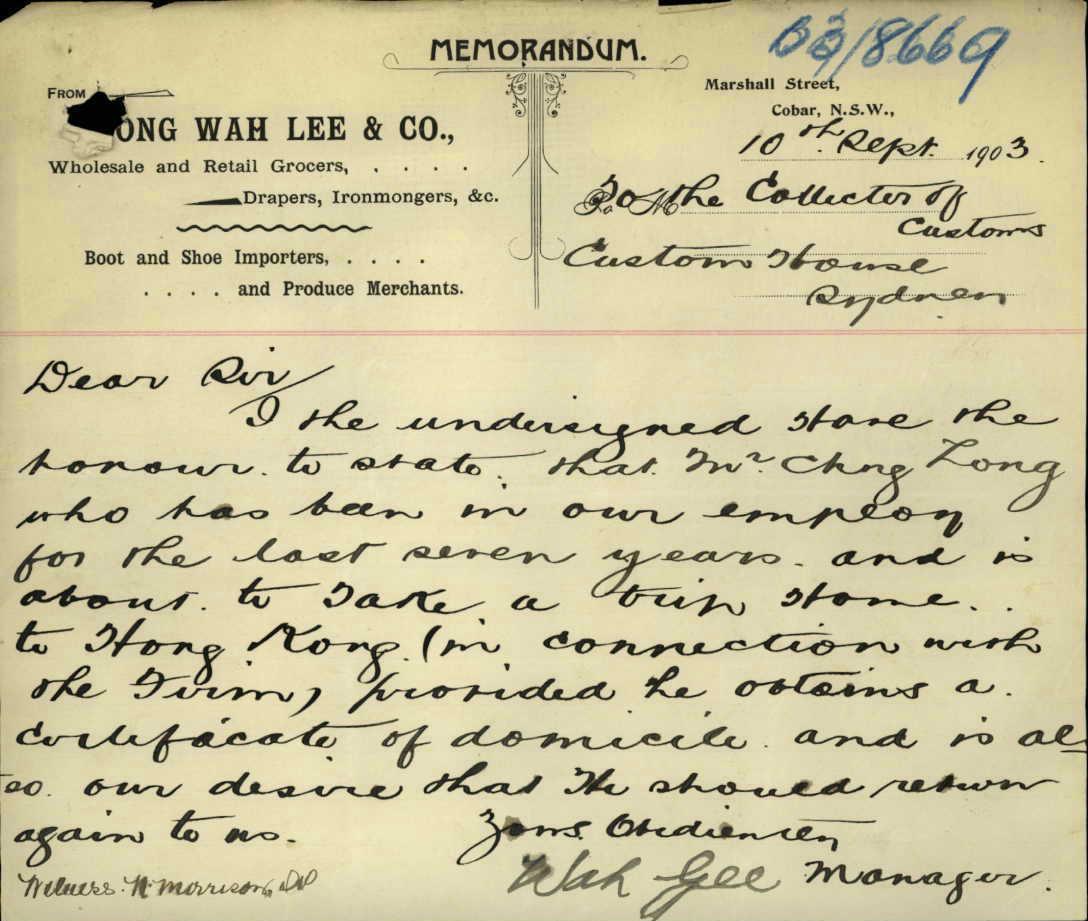 MEMORANDUM.
B3/8669
FROM
ONG WAH LEE & CO.,
Wholesale and Retail Grocers, . . . .
Drapers, Ironmongers, &c.
Boot and Shoe Importers, . . . .
. . . . and Produce Merchants.
Marshall Street,
Cobar, N.S.W.,
10th Sept. 1903.
To the Collector of
Customs
Custom House
Sydney
Dear Sir
I the undersigned Have the
honour. to state. that. Mr. Chng Long
who has been in our employ
for the last seven years. and is
about. to Take a trip Home. .
to Hong Kong. (in connection with
the Firm) provided he obtains a.
certificate of domicile. and is al-
so. our desire that He should return
again to us.
Yours. Obediently
Wah Gee Manager.
Witness. W. Morrison, JP